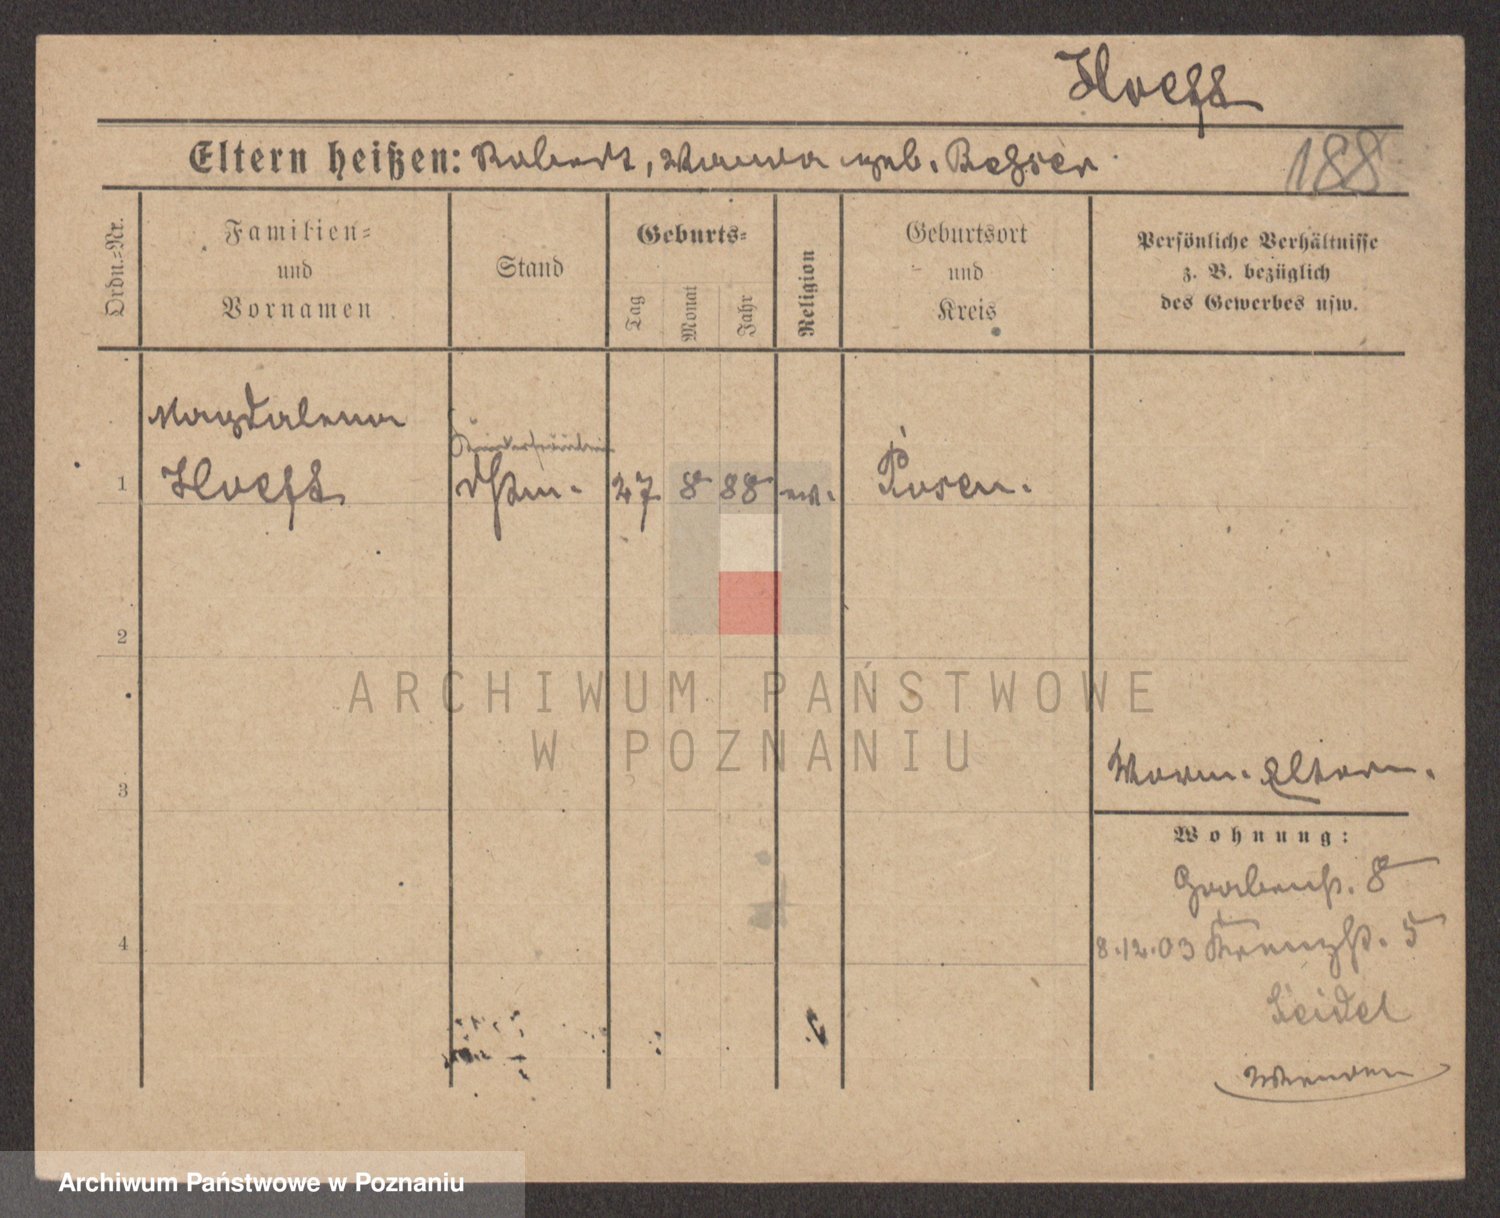 Hoeft
Eltern heißen: Robert, Wanda geb. Rehfer
188
Ordn.-Nr.
Familien-
und
Vornamen
Stand
Geburts-
Tag
Monat
Jahr
Religion
Geburtsort
und
Kreis
Persönliche Verhältnisse
z. B. bezüglich
des Gewerbes usw.
Magdalena
Kinderfräulein
1 Hoeft 27 8 88 ev. Posen.
2
ARCHIWUM PAŃSTWOWE
W POZNANIU
3
Eltern.
Wohnung:
Grabenst. 8
4
8.12.03 Kreuzst. 5
Seidel
Wenden
Archiwum Państwowe w Poznaniu